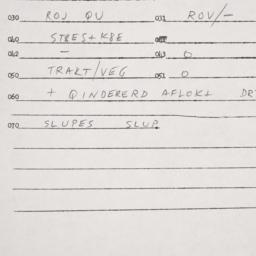 030 ROJ QU 031 ROV/-
040 STRES+ K8E
042 - 043 O
050 TRAKT/VEG 051 O
060 + QINDERERD AFLOKL DR
070 SLUPES SLUP